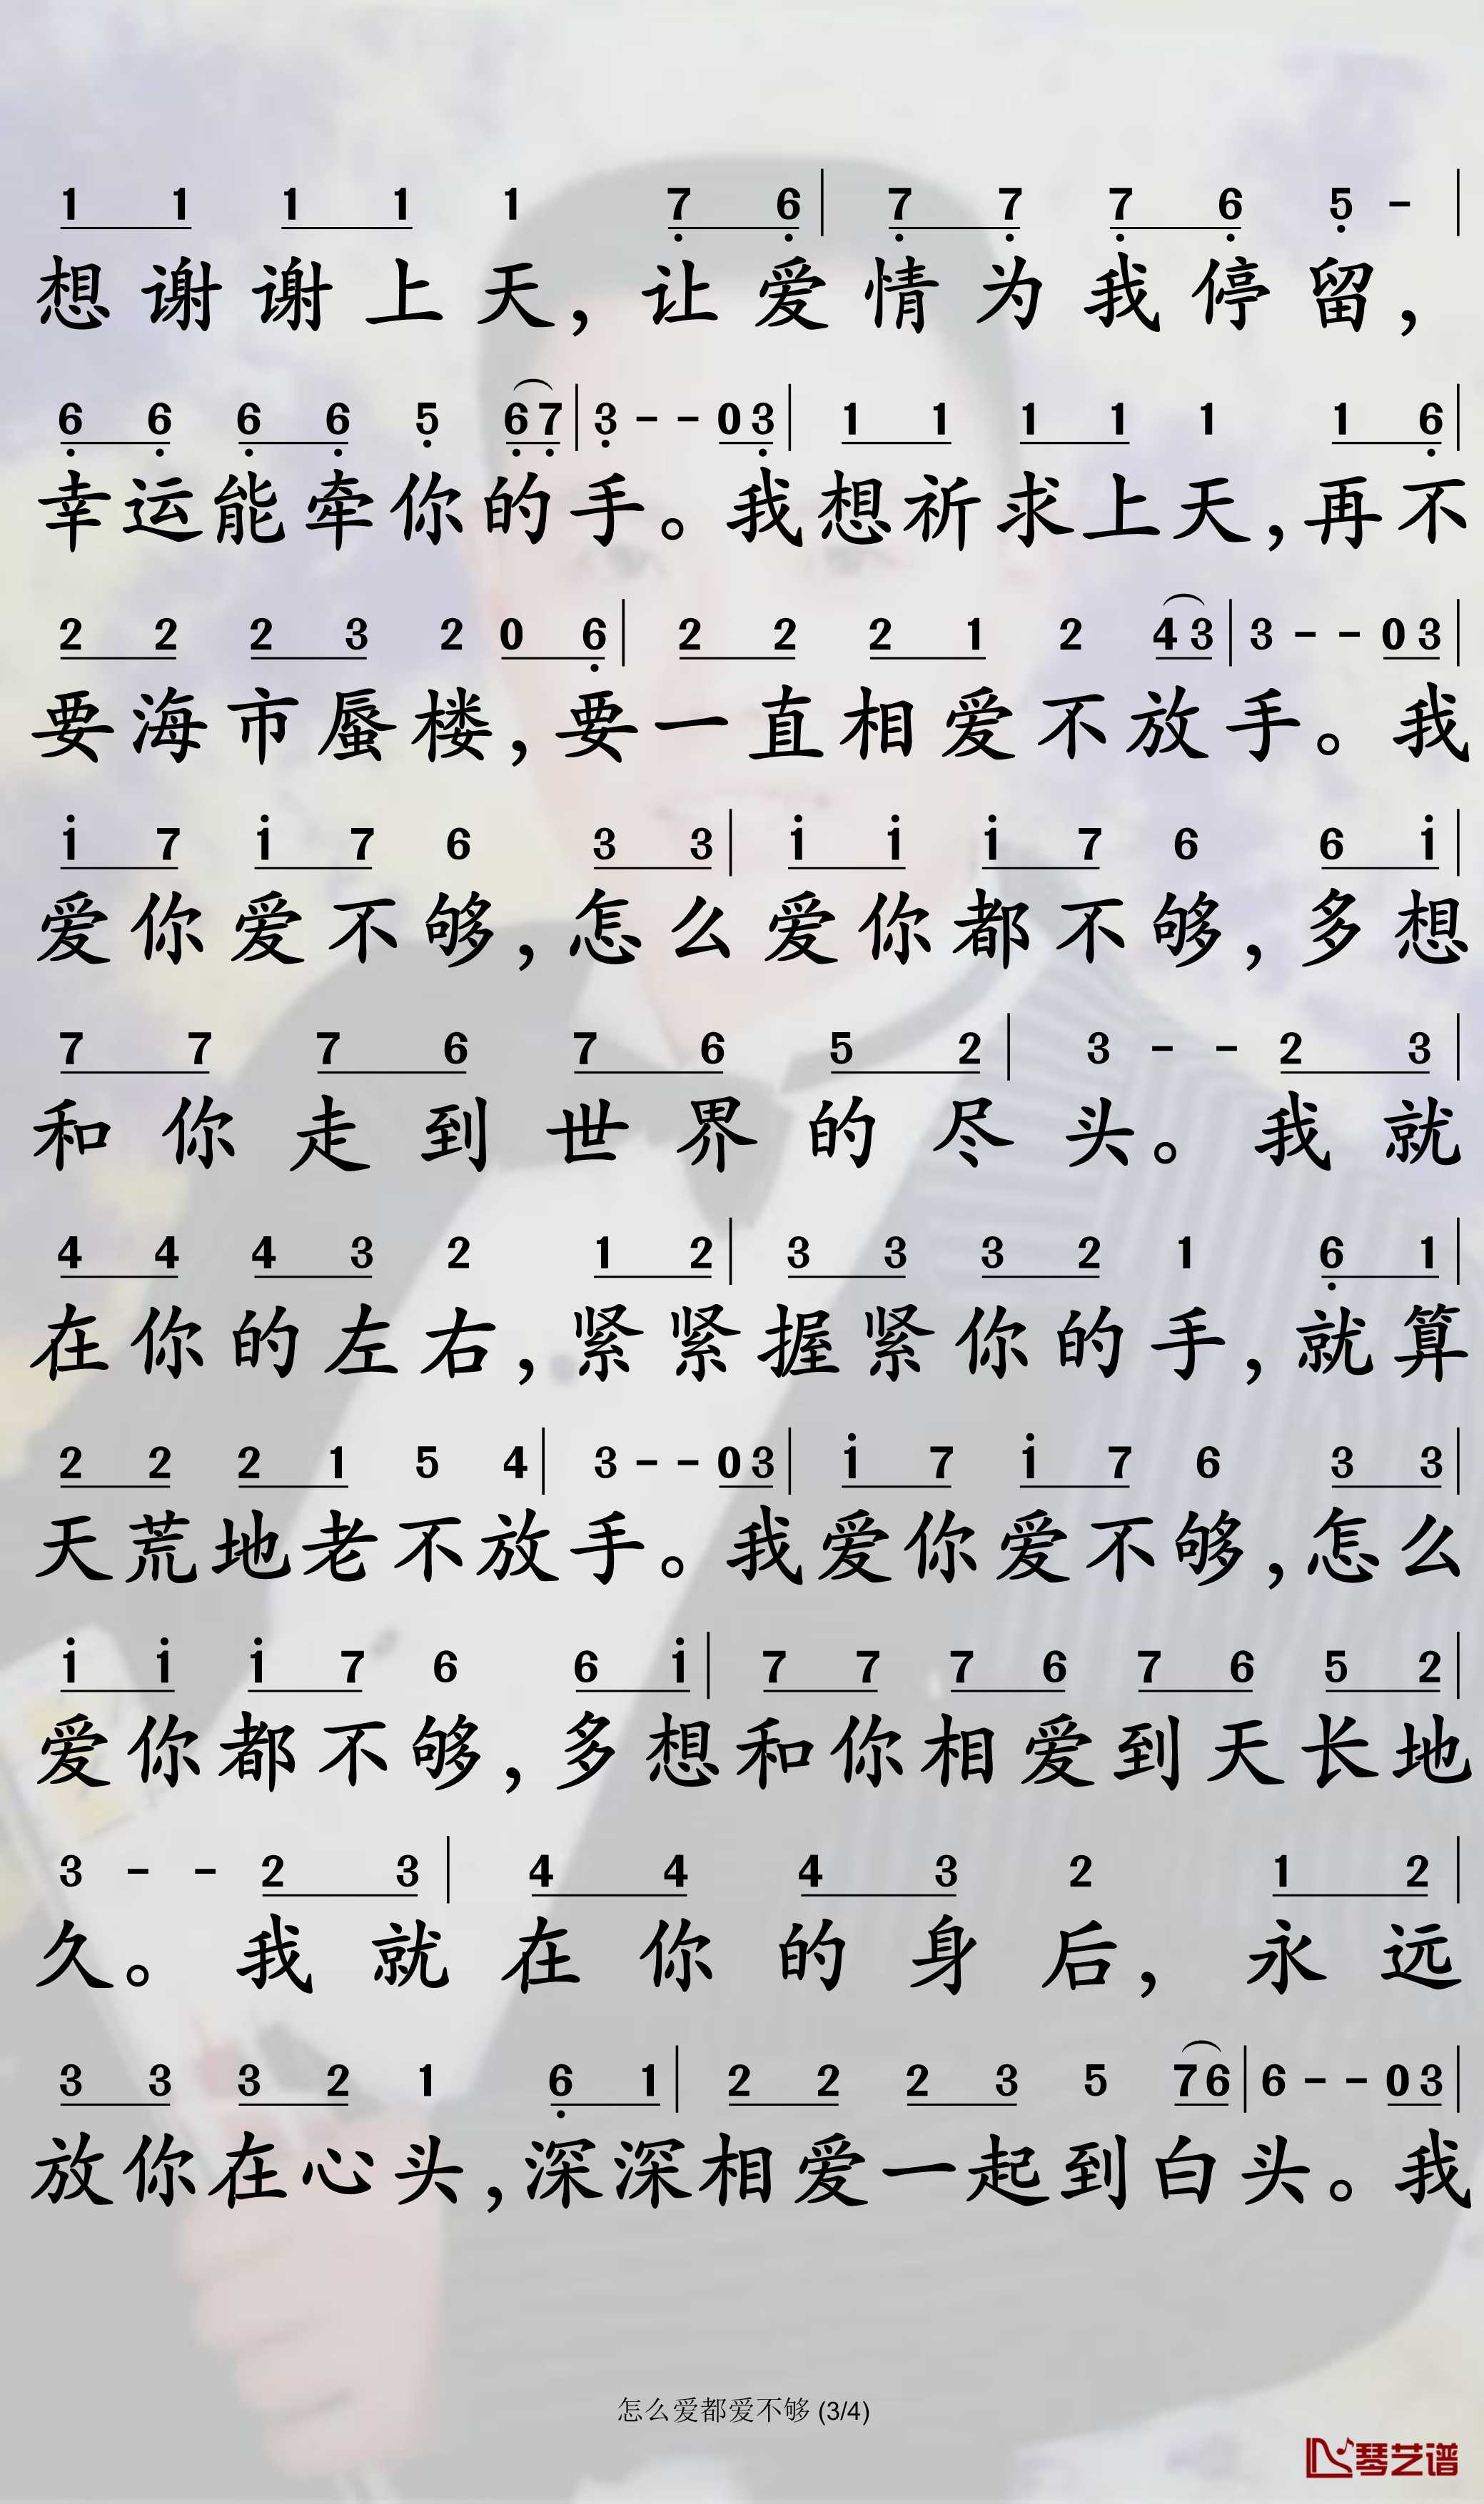 1 1 1 1 1 7̣ 6̣ | 7̣ 7̣ 7̣ 6̣ 5̣ - |
想谢谢上天，让爱情为我停留，
6̣ 6̣ 6̣ 6̣ 5̣ 6̣ 7̣ | 3̣ - - 0 3̣ | 1 1 1 1 1 1 6̣ |
幸运能牵你的手。我想祈求上天，再不
2 2 2 3 2 0 6̣ | 2 2 2 1 2 4 3 | 3 - - 0 3 |
要海市蜃楼，要一直相爱不放手。我
1̇ 7 1̇ 7 6 3 3 | 1̇ 1̇ 1̇ 7 6 6 1̇ |
爱你爱不够，怎么爱你都不够，多想
7 7 7 6 7 6 5 2 | 3 - - 2 3 |
和你走到世界的尽头。我就
4 4 4 3 2 1 2 | 3 3 3 2 1 6̣ 1 |
在你的左右，紧紧握紧你的手，就算
2 2 2 1 5 4 | 3 - - 0 3 | 1̇ 7 1̇ 7 6 3 3 |
天荒地老不放手。我爱你爱不够，怎么
1̇ 1̇ 1̇ 7 6 6 1̇ | 7 7 7 6 7 6 5 2 |
爱你都不够，多想和你相爱到天长地
3 - - 2 3 | 4 4 4 3 2 1 2 |
久。我就在你的身后，永远
3 3 3 2 1 6̣ 1 | 2 2 2 3 5 7 6 | 6 - - 0 3 |
放你在心头，深深相爱一起到白头。我
怎么爱都爱不够 (3/4)
琴艺谱